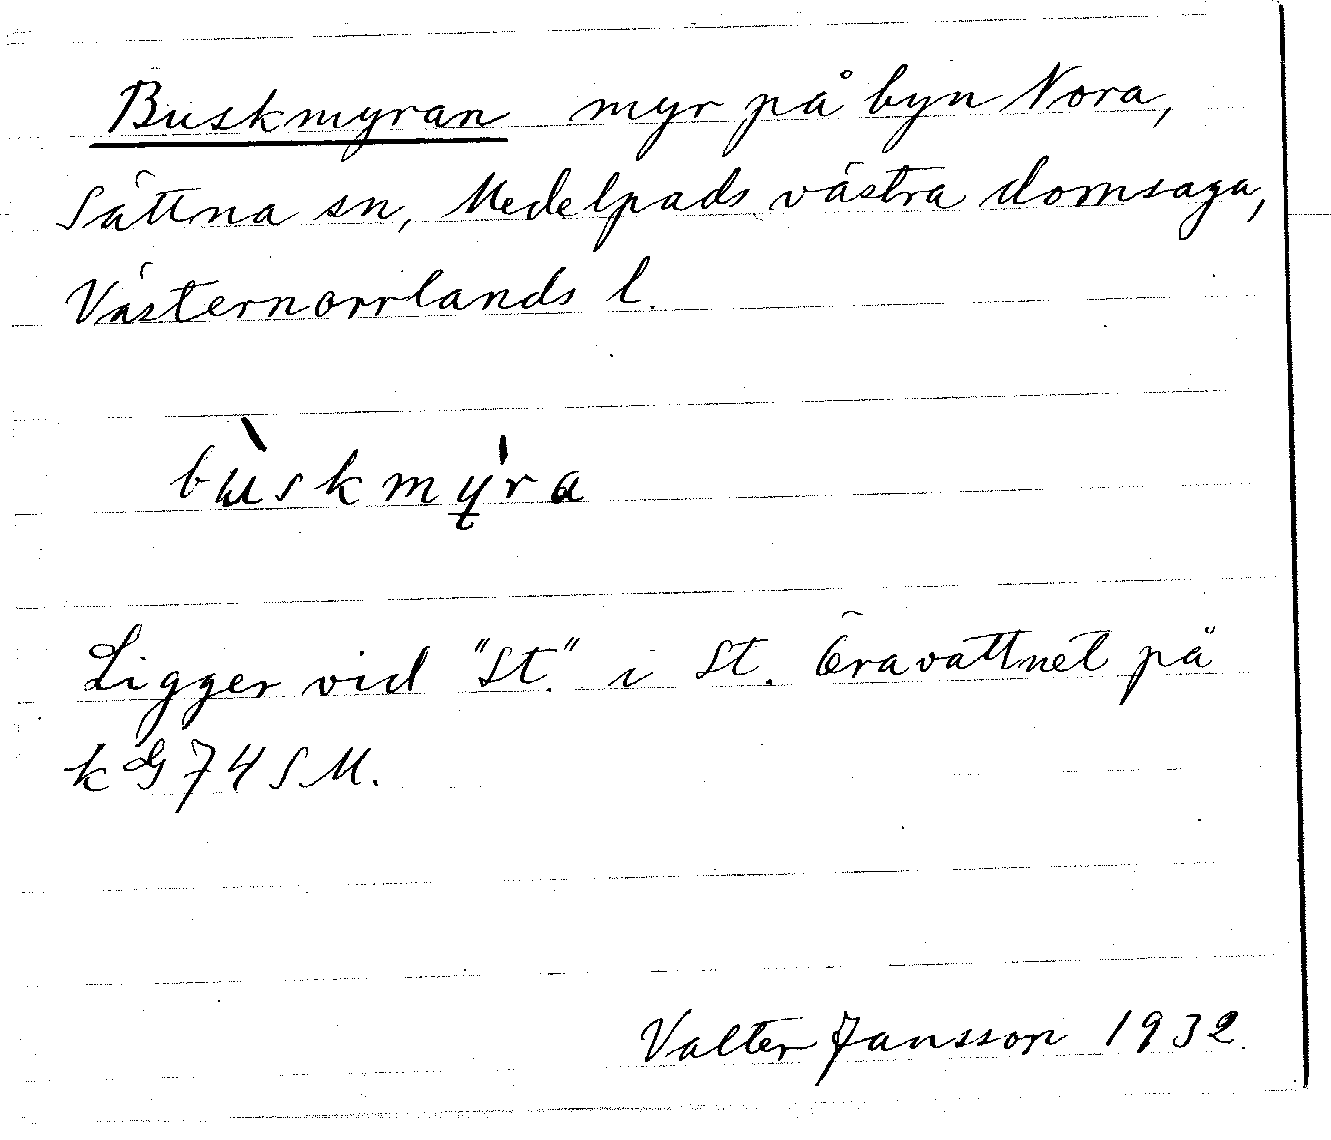 Buskmyran myr på byn Nora,
Sättna sn, Medelpads västra domsaga,
Västernorrlands l.
bùskmy̱̍ra
Ligger vid "St." i St. Öravattnet på
k G74SM.
Valter Jansson 1932.